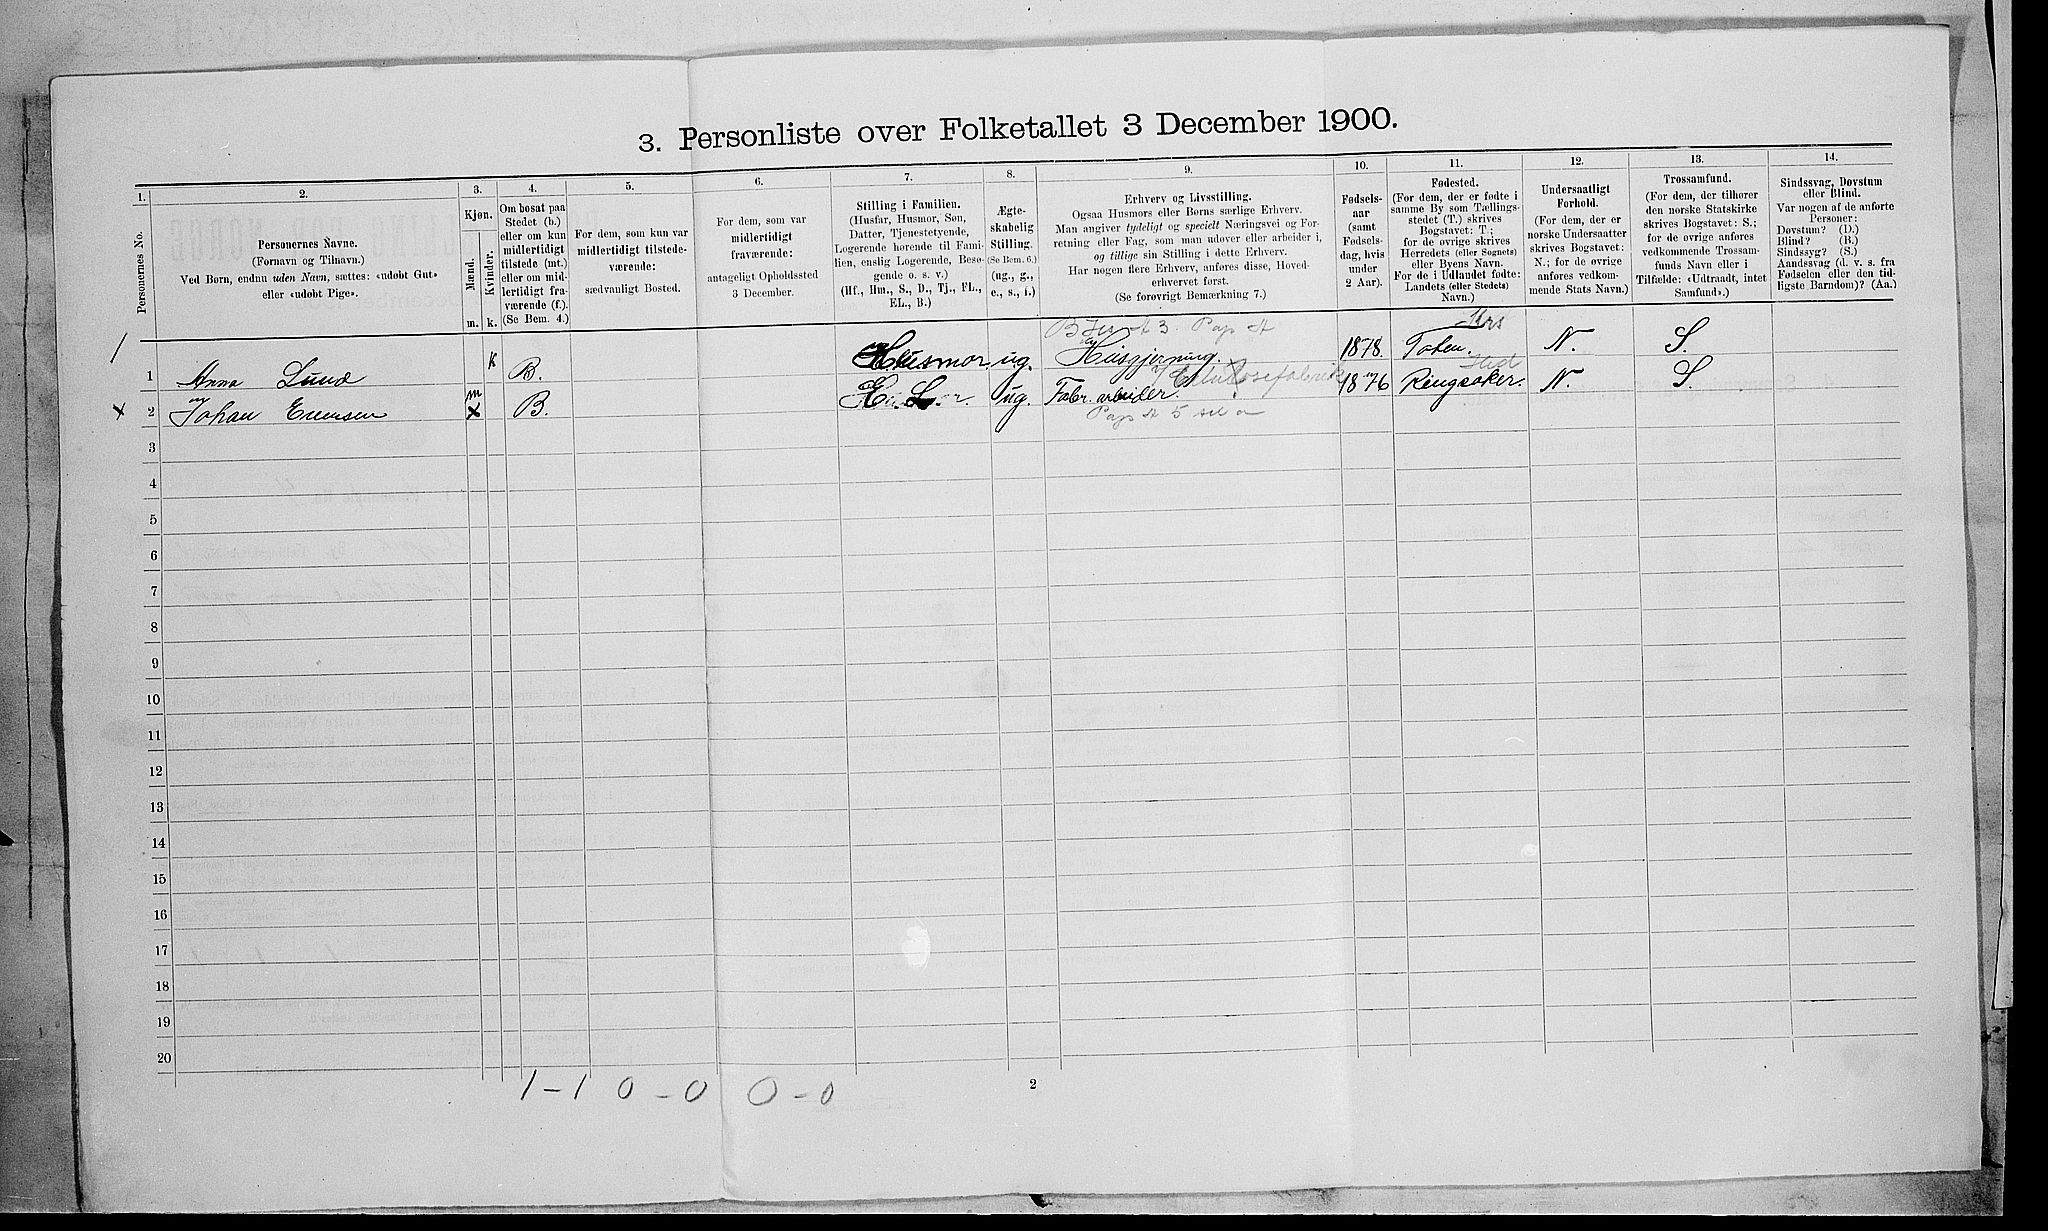 3. Personliste over Folketallet 3 December 1900.
1.
2.
3.
4.
5.
6.
7.
8.
9.
10.
11.
12.
13.
14.
Personernes No.
Personernes Navne.
(Fornavn og Tilnavn.)
Ved Børn, endnu uden Navn, sættes: «udøbt Gut»
eller «udøbt Pige».
Kjøn.
Mænd.
Kvinder.
m.
k.
Om bosat paa
Stedet (b.)
eller om kun
midlertidigt
tilstede (mt.)
eller om mid-
lertidigt fra-
værende (f.).
(Se Bem. 4.)
For dem, som kun var
midlertidigt tilstede-
værende:
sædvanligt Bosted.
For dem, som var
midlertidigt
fraværende:
antageligt Opholdssted
3 December.
Stilling i Familien.
(Husfar, Husmor, Søn,
Datter, Tjenestetyende,
Logerende hørende til Fami-
lien, enslig Logerende, Besø-
gende o. s. v.)
(Hf., Hm., S., D., Tj., FL.,
EL., B.)
Ægte-
skabelig
Stilling.
(Se Bem. 6.)
(ug., g.,
e., s., f.)
Erhverv og Livsstilling.
Ogsaa Husmors eller Børns særlige Erhverv.
Man angiver tydeligt og specielt Næringsvei og For-
retning eller Fag, som man udøver eller arbeider i,
og tillige sin Stilling i dette Erhverv.
Har nogen flere Erhverv, anføres disse, Hoved-
erhvervet først.
(Se forøvrigt Bemærkning 7.)
Fødsels-
aar
(samt
Fødsels-
dag, hvis
under
2 Aar).
Fødested.
(For dem, der er fødte i
samme By som Tællings-
stedet (T.) skrives
Bogstavet: T.;
for de øvrige skrives
Herredets (eller Sognets)
eller Byens Navn.
For de i Udlandet fødte:
Landets (eller Stedets)
Navn.)
Undersaatligt
Forhold.
(For dem, der er
norske Undersaatter
skrives Bogstavet:
N.; for de øvrige
anføres vedkom-
mende Stats Navn.)
Trossamfund.
(For dem, der tilhører
den norske Statskirke
skrives Bogstavet: S.;
for de øvrige anføres
vedkommende Trossam-
funds Navn eller i
Tilfælde: «Udtraadt, intet
Samfund».)
Sindssvag, Døvstum
eller Blind.
Var nogen af de anførte
Personer:
Døvstum? (D.)
Blind? (B.)
Sindssyg? (S.)
Aandssvag (d. v. s. fra
Fødselen eller den tid-
ligste Barndom)? (Aa.)
1 Anna Lund k B. Husmor ug. Husgjerning. 1878. Toten. N. S.
x 2 Johan Evensen m x B. ug. Fabr. arbeider. Cellulosefabrik 1876 Ringsaker. N. S
3
4
5
6
7
8
9
10
11
12
13
14
15
16
17
18
19
20
1 - 1 0 - 0 0 - 0
2